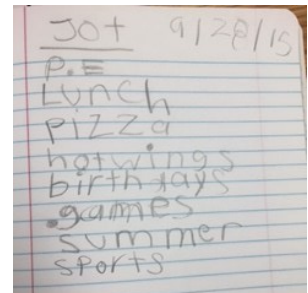 Jot 9/28/15
P.E
Lunch
Pizza
hotwings
birthdays
games
summer
sports